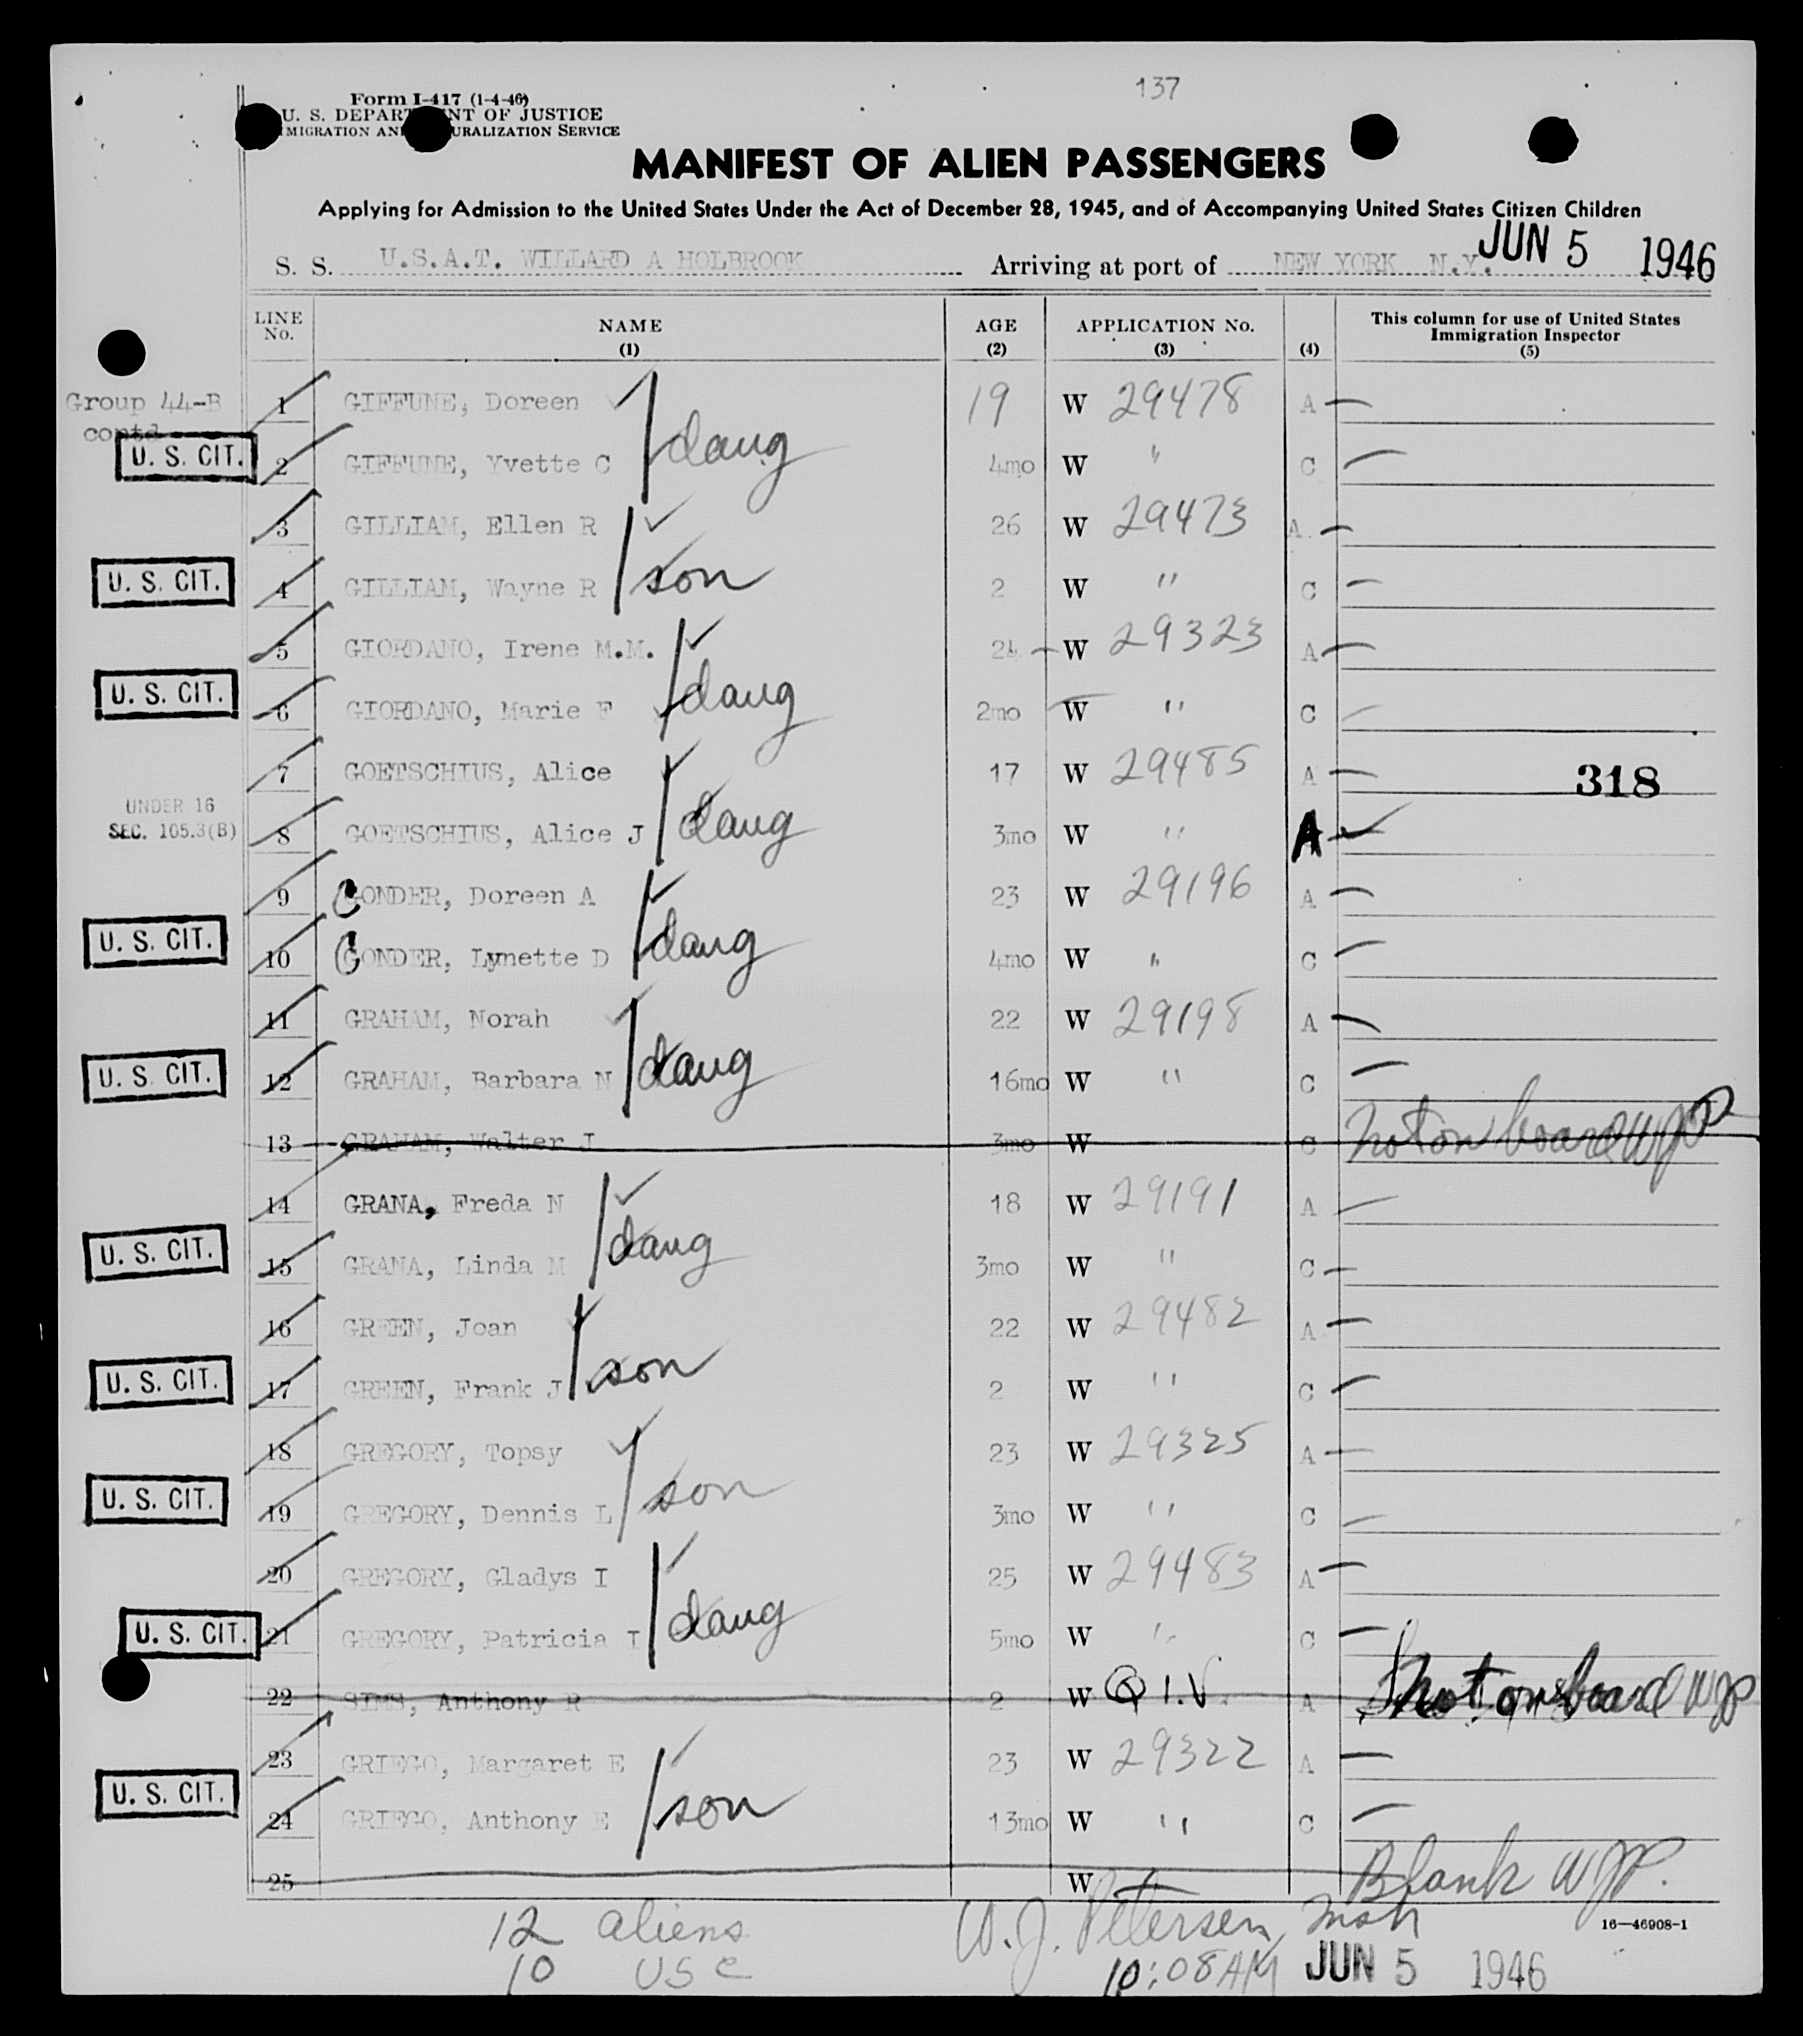 137
Form I-417 (1-4-46)
U. S. DEPARTMENT OF JUSTICE
IMMIGRATION AND NATURALIZATION SERVICE
MANIFEST OF ALIEN PASSENGERS
Applying for Admission to the United States Under the Act of December 28, 1945, and of Accompanying United States Citizen Children
S. S. U.S.A.T. WILLARD A HOLBROOK Arriving at port of NEW YORK N.Y. JUN 5 1946
LINE No. NAME (1) AGE (2) APPLICATION No. (3) (4) This column for use of United States Immigration Inspector (5)
Group 44-B contd
1 GIFFUNE, Doreen 19 W 29478 A
U. S. CIT. 2 GIFFUNE, Yvette C daug 4mo W " C
3 GILLIAM, Ellen R 26 W 29473 A
U. S. CIT. 4 GILLIAM, Wayne R son 2 W " C
5 GIORDANO, Irene M.M. 24 W 29323 A
U. S. CIT. 6 GIORDANO, Marie F daug 2mo W " C
7 GOETSCHIUS, Alice 17 W 29485 A 318
UNDER 16
SEC. 105.3(B) 8 GOETSCHIUS, Alice J daug 3mo W " A
9 CONDER, Doreen A 23 W 29196 A
U. S. CIT. 10 CONDER, Lynette D daug 4mo W " C
11 GRAHAM, Norah 22 W 29198 A
U. S. CIT. 12 GRAHAM, Barbara N daug 16mo W " C
13 GRAHAM, Walter J 3mo W C not on board WJP
14 GRANA, Freda N 18 W 29191 A
U. S. CIT. 15 GRANA, Linda M daug 3mo W " C
16 GREEN, Joan 22 W 29482 A
U. S. CIT. 17 GREEN, Frank J son 2 W " C
18 GREGORY, Topsy 23 W 29325 A
U. S. CIT. 19 GREGORY, Dennis L son 3mo W " C
20 GREGORY, Gladys I 25 W 29483 A
U. S. CIT. 21 GREGORY, Patricia I daug 5mo W " C
22 SIMS, Anthony R 2 W Q I.V. A not on board WJP
23 GRIEGO, Margaret E 23 W 29322 A
U. S. CIT. 24 GRIEGO, Anthony E son 13mo W " C
25 W Blank WJP.
12 aliens W. J. Petersen, Insp 16—46908-1
10 USC 10:08 AM JUN 5 1946